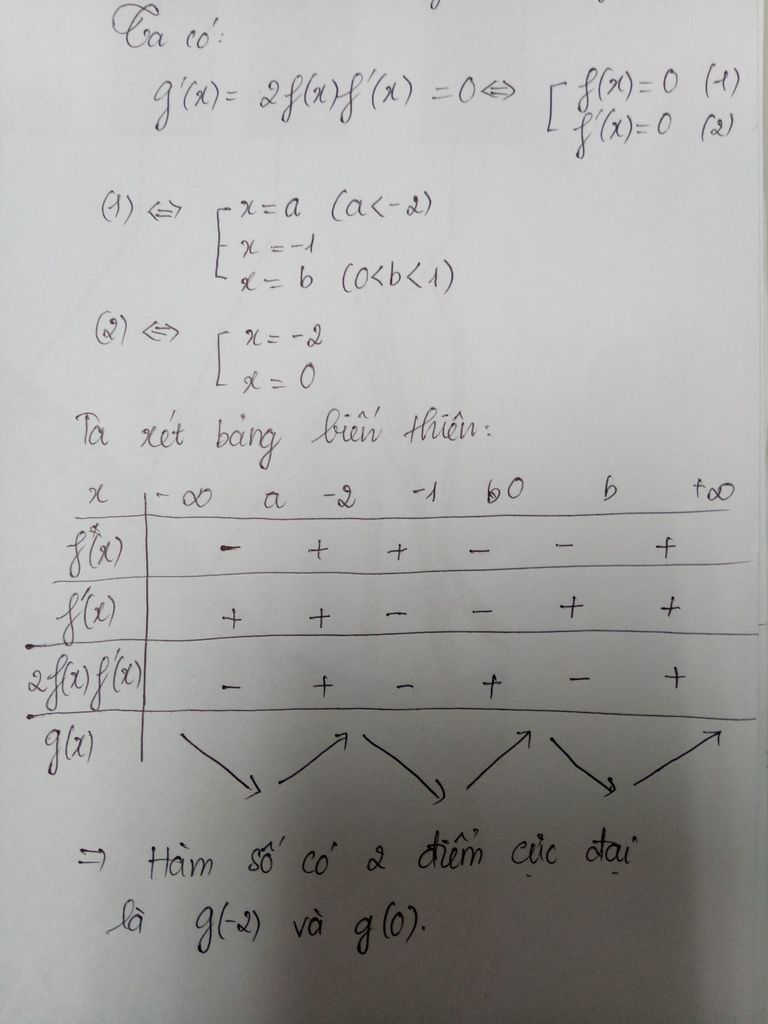 Ta có:
g'(x) = 2f(x)f'(x) = 0 ⇔ [ f(x) = 0 (1)
f'(x) = 0 (2)
(1) ⇔ [ x = a (a < -2)
x = -1
x = b (0 < b < 1)
(2) ⇔ [ x = -2
x = 0
Ta xét bảng biến thiên:
x -∞ a -2 -1 0 b +∞
f(x) - + + - - +
f'(x) + + - - + +
2f(x)f'(x) - + - + - +
g(x)
⇒ Hàm số có 2 điểm cực đại
là g(-2) và g(0).